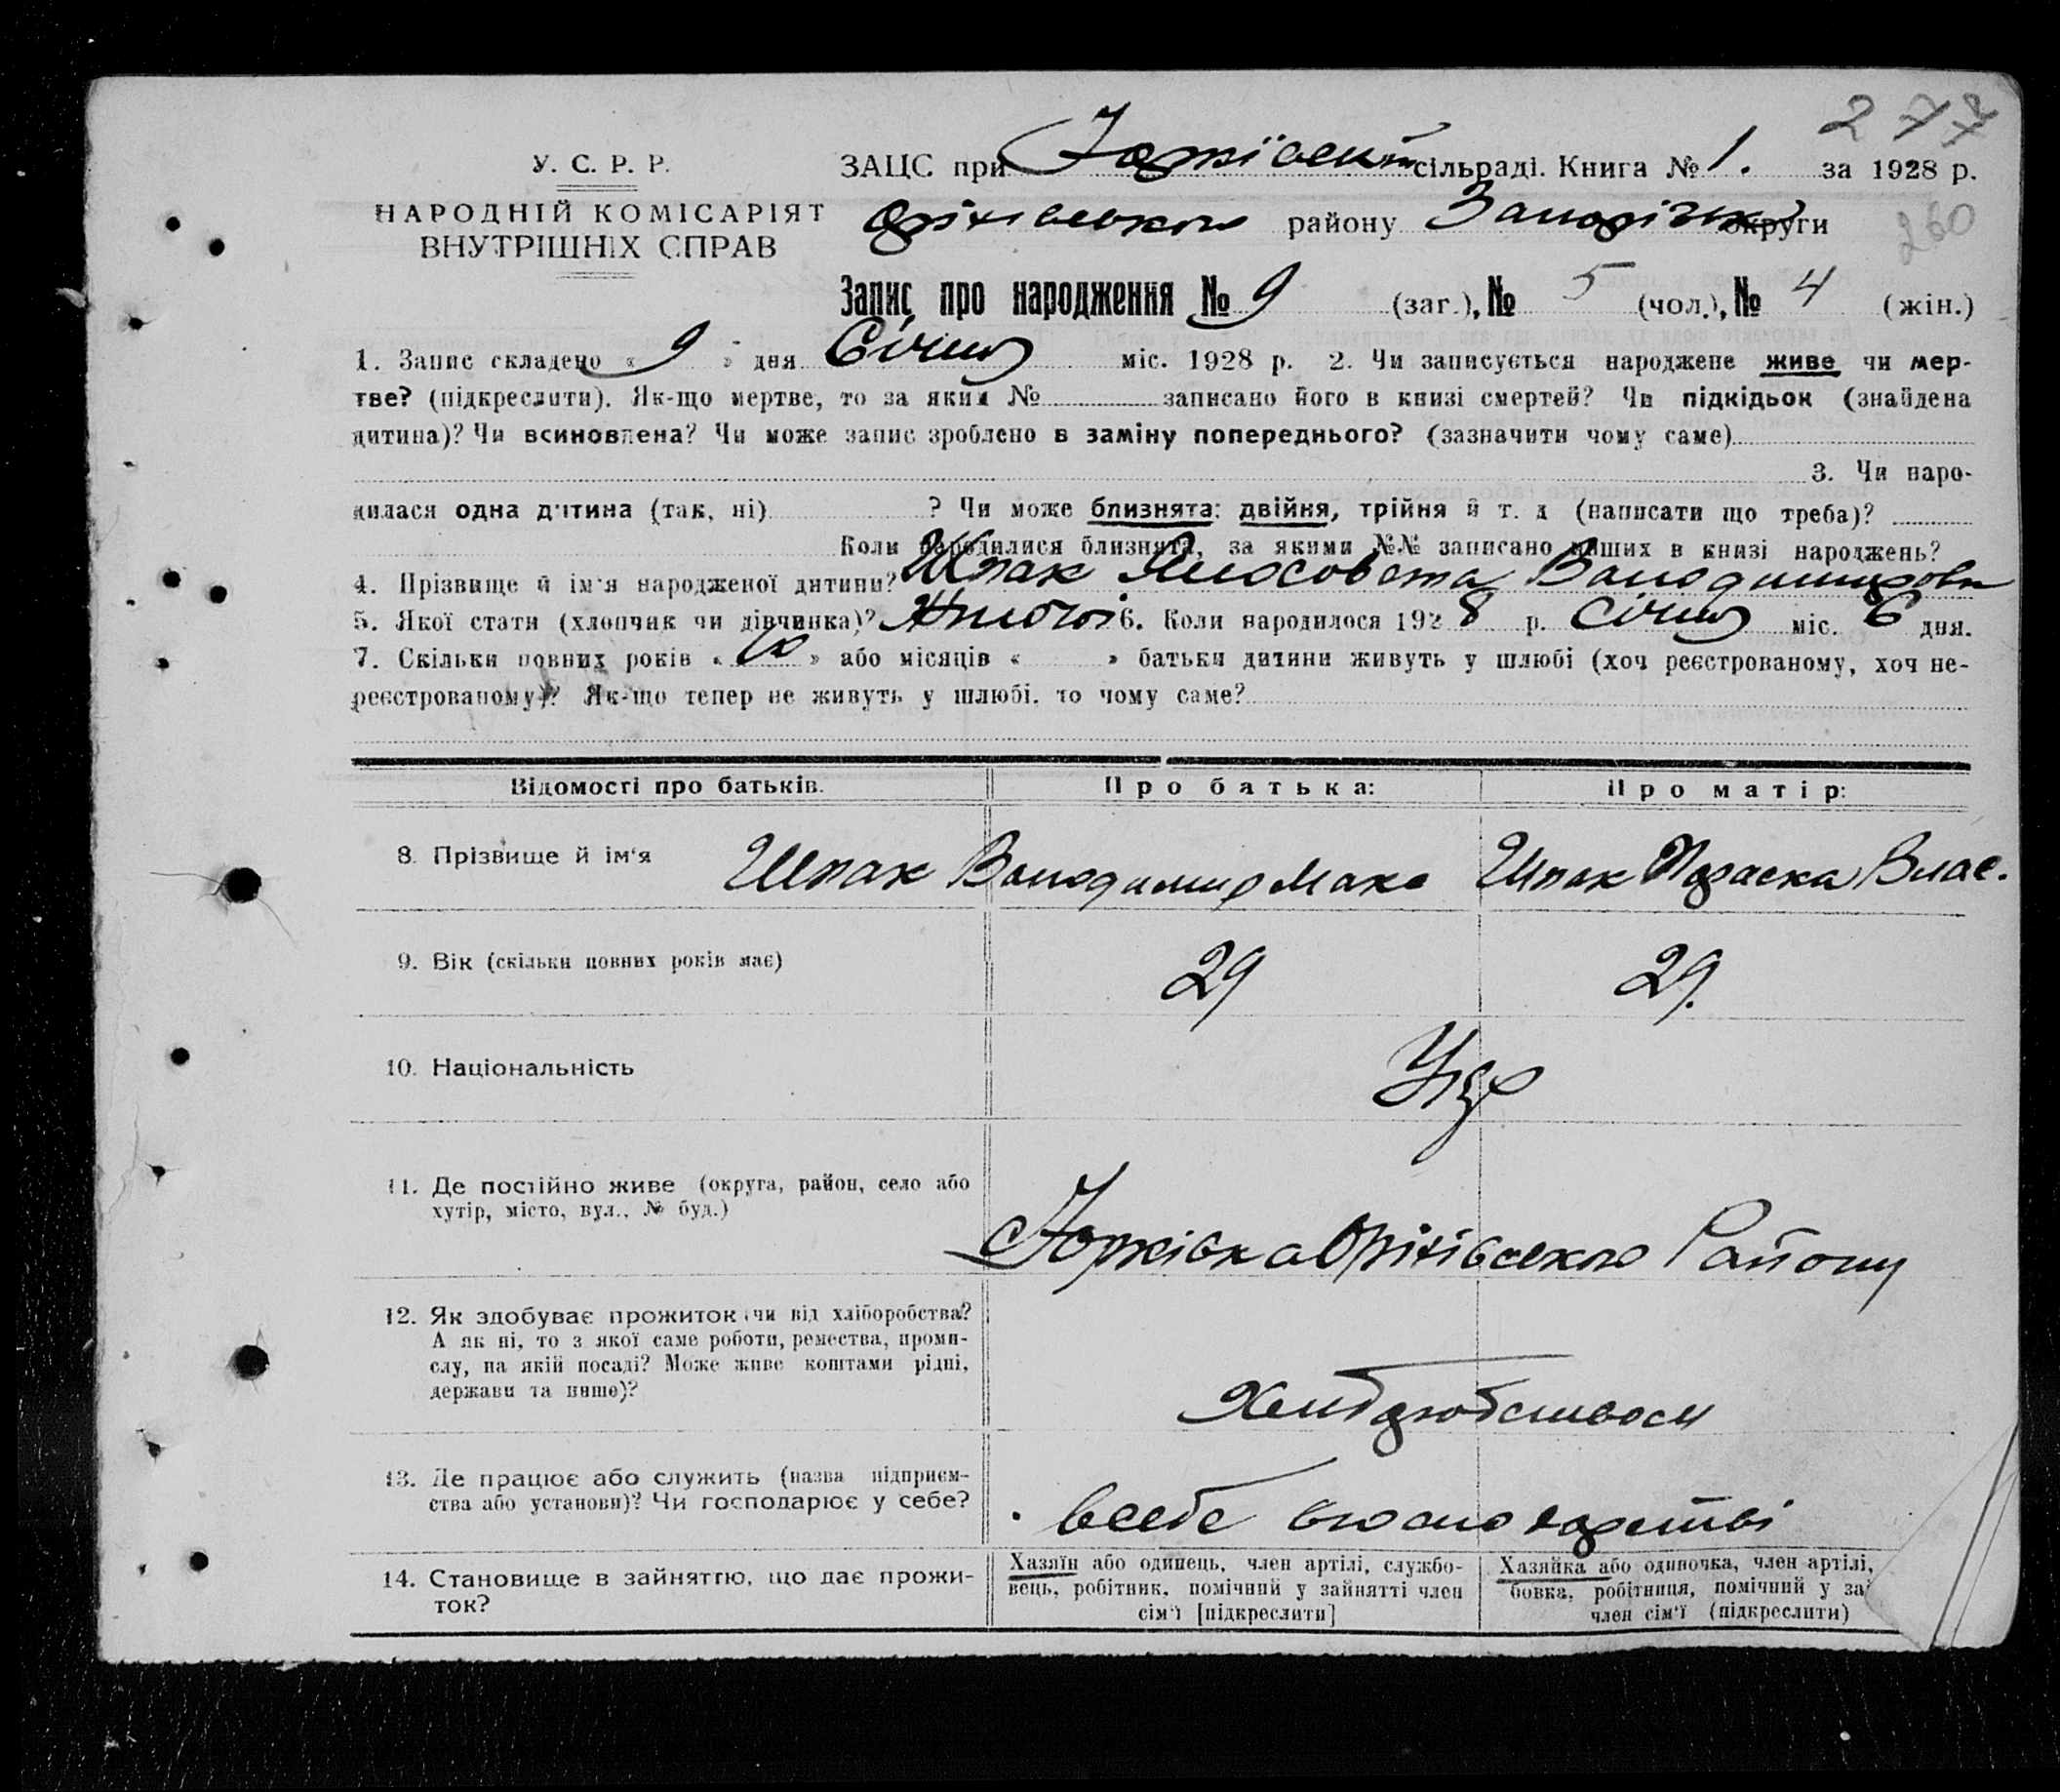 277
У. С. Р. Р.
ЗАЦС при Юрківськ сільраді. Книга № 1. за 1928 р.
НАРОДНІЙ КОМІСАРІЯТ
ВНУТРІШНІХ СПРАВ
Оріхівського району Запоріжк округи
260
Запис про народження № 9 (заг.), № 5 (чол.), № 4 (жін.)
1. Запис складено « 9 » дня Січня міс. 1928 р. 2. Чи записується народжене живе чи мер-
тве? (підкреслити). Як-що мертве, то за яким № записано його в книзі смертей? Чи підкідьок (знайдена
дитина)? Чи всиновлена? Чи може запис зроблено в заміну попереднього? (зазначити чому саме)
3. Чи наро-
дилася одна дитина (так, ні) ? Чи може близнята: двійня, трійня й т. д (написати що треба)?
Коли народилися близнята, за якими №№ записано инших в книзі народжень?
4. Прізвище й ім'я народженої дитини? Шпак Володимировн
5. Якої стати (хлопчик чи дівчинка)? 6. Коли народилося 1928 р. Січня міс. 6 дня.
7. Скільки повних років « 10 » або місяців « » батьки дитини живуть у шлюбі (хоч реєстрованому, хоч не-
реєстрованому)? Як-що тепер не живуть у шлюбі, то чому саме?
Відомості про батьків. Про батька: Про матір:
8. Прізвище й ім'я Шпак Володимир Макс Шпак Параска Влас.
9. Вік (скільки повних років має) 29 29.
10. Національність Укр
11. Де постійно живе (округа, район, село або
хутір, місто, вул., № буд.)
Юрківка Оріхівського Району
12. Як здобуває прожиток чи від хліборобства?
А як ні, то з якої саме роботи, ремества, проми-
слу, на якій посаді? Може живе коштами рідні,
держави та инше)?
Хлибробством
13. Де працює або служить (назва підприєм-
ства або установи)? Чи господарює у себе?
всебе вгосподарстві
14. Становище в зайняттю, що дає прожи-
ток?
Хазяїн або одинець, член артілі, службо-
вець, робітник, помічний у зайнятті член
сім'ї [підкреслити]
Хазяйка або одиночка, член артілі,
бовка, робітниця, помічний у за
член сім'ї (підкреслити)